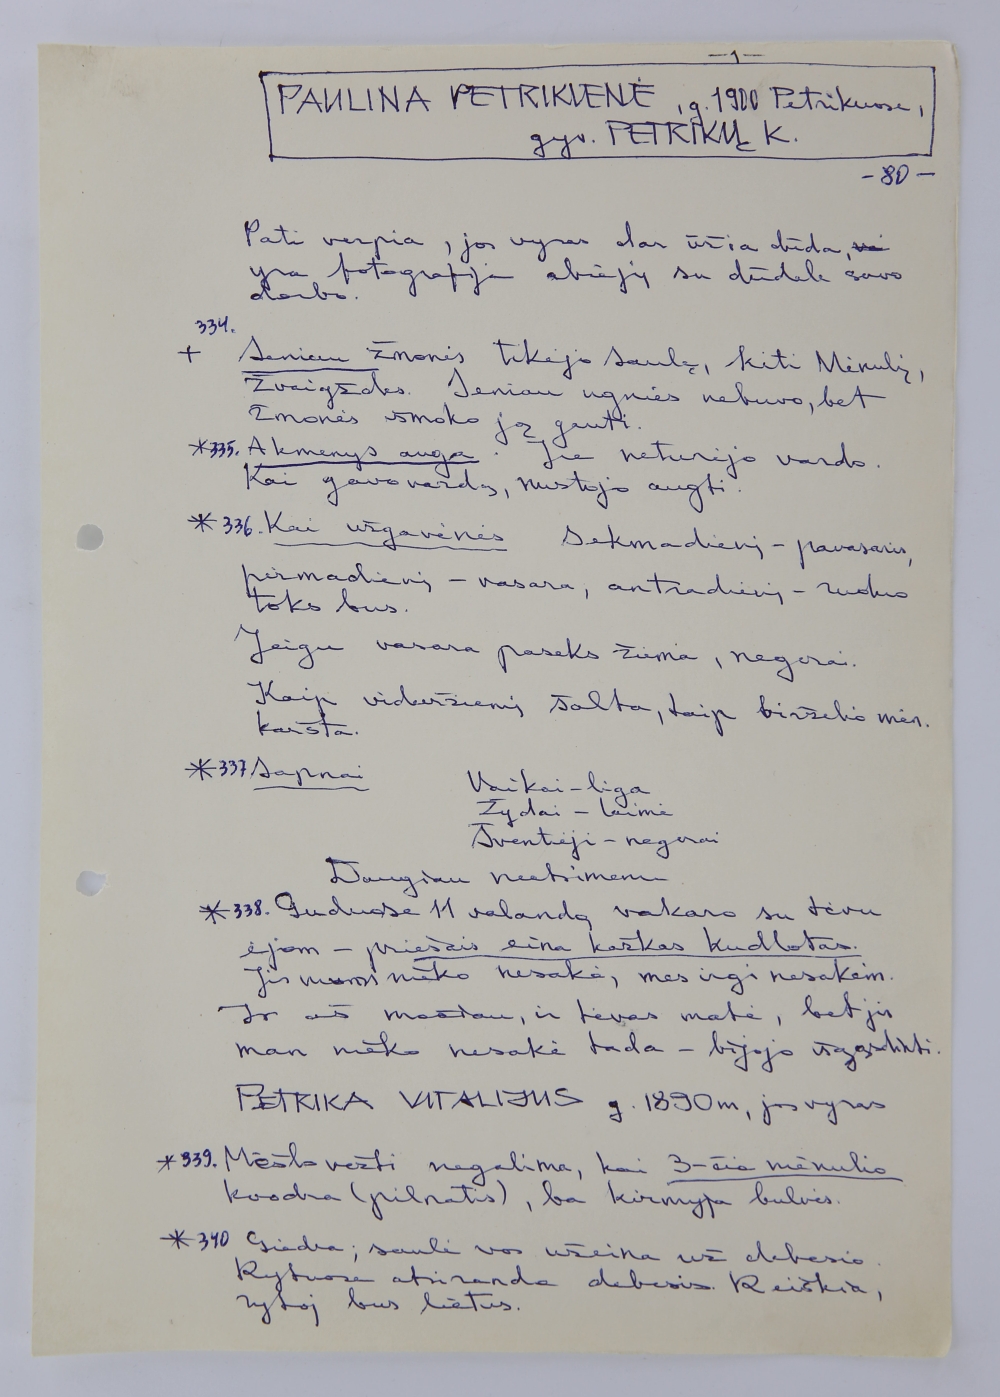 —1—
PAULINA PETRIKIENĖ, g. 1900 Petrikuose,
gyv. PETRIKŲ K.
-80-
Pati verpia, jos vyras dar ūžia dūda,
yra fotografija abiejų su dūdele savo
darbo.
334.
+ Seniau žmonės tikėjo Saulę, kiti Mėnulį,
Žvaigždes. Seniau ugnies nebuvo, bet
žmonės išmoko ją gauti.
*335. Akmenys auga. Jie neturėjo vardo.
Kai gavo vardą, nustojo augti.
*336. Kai užgavėnės sekmadienį - pavasaris,
pirmadienį - vasara, antradienį - ruduo
toks bus.
Jeigu vasara paseks žiema, negerai.
Kaip viduržiemį šalta, taip birželio mėn.
karšta.
*337 Sapnai Vaikai - liga
Žydai - laimė
Šventieji - negerai
Daugiau neatsimenu
*338. Guduose 11 valandą vakaro su tėvu
ėjom - priešais eina kažkas kudlotas.
Jis mums nieko nesakė, mes irgi nesakėm.
Ir aš mačiau, ir tėvas matė, bet jis
man nieko nesakė tada - bijojo išgąsdinti.
PETRIKA VITALIJUS g. 1890 m, jos vyras
*339. Mėšlo vežti negalima, kai 3-čio mėnulio
kvadra (pilnatis), ba kirmyja bulvės.
*340 Giedra; saulė vos užeina už debesio.
Rytuose atsiranda debesis. Reiškia,
rytoj bus lietus.